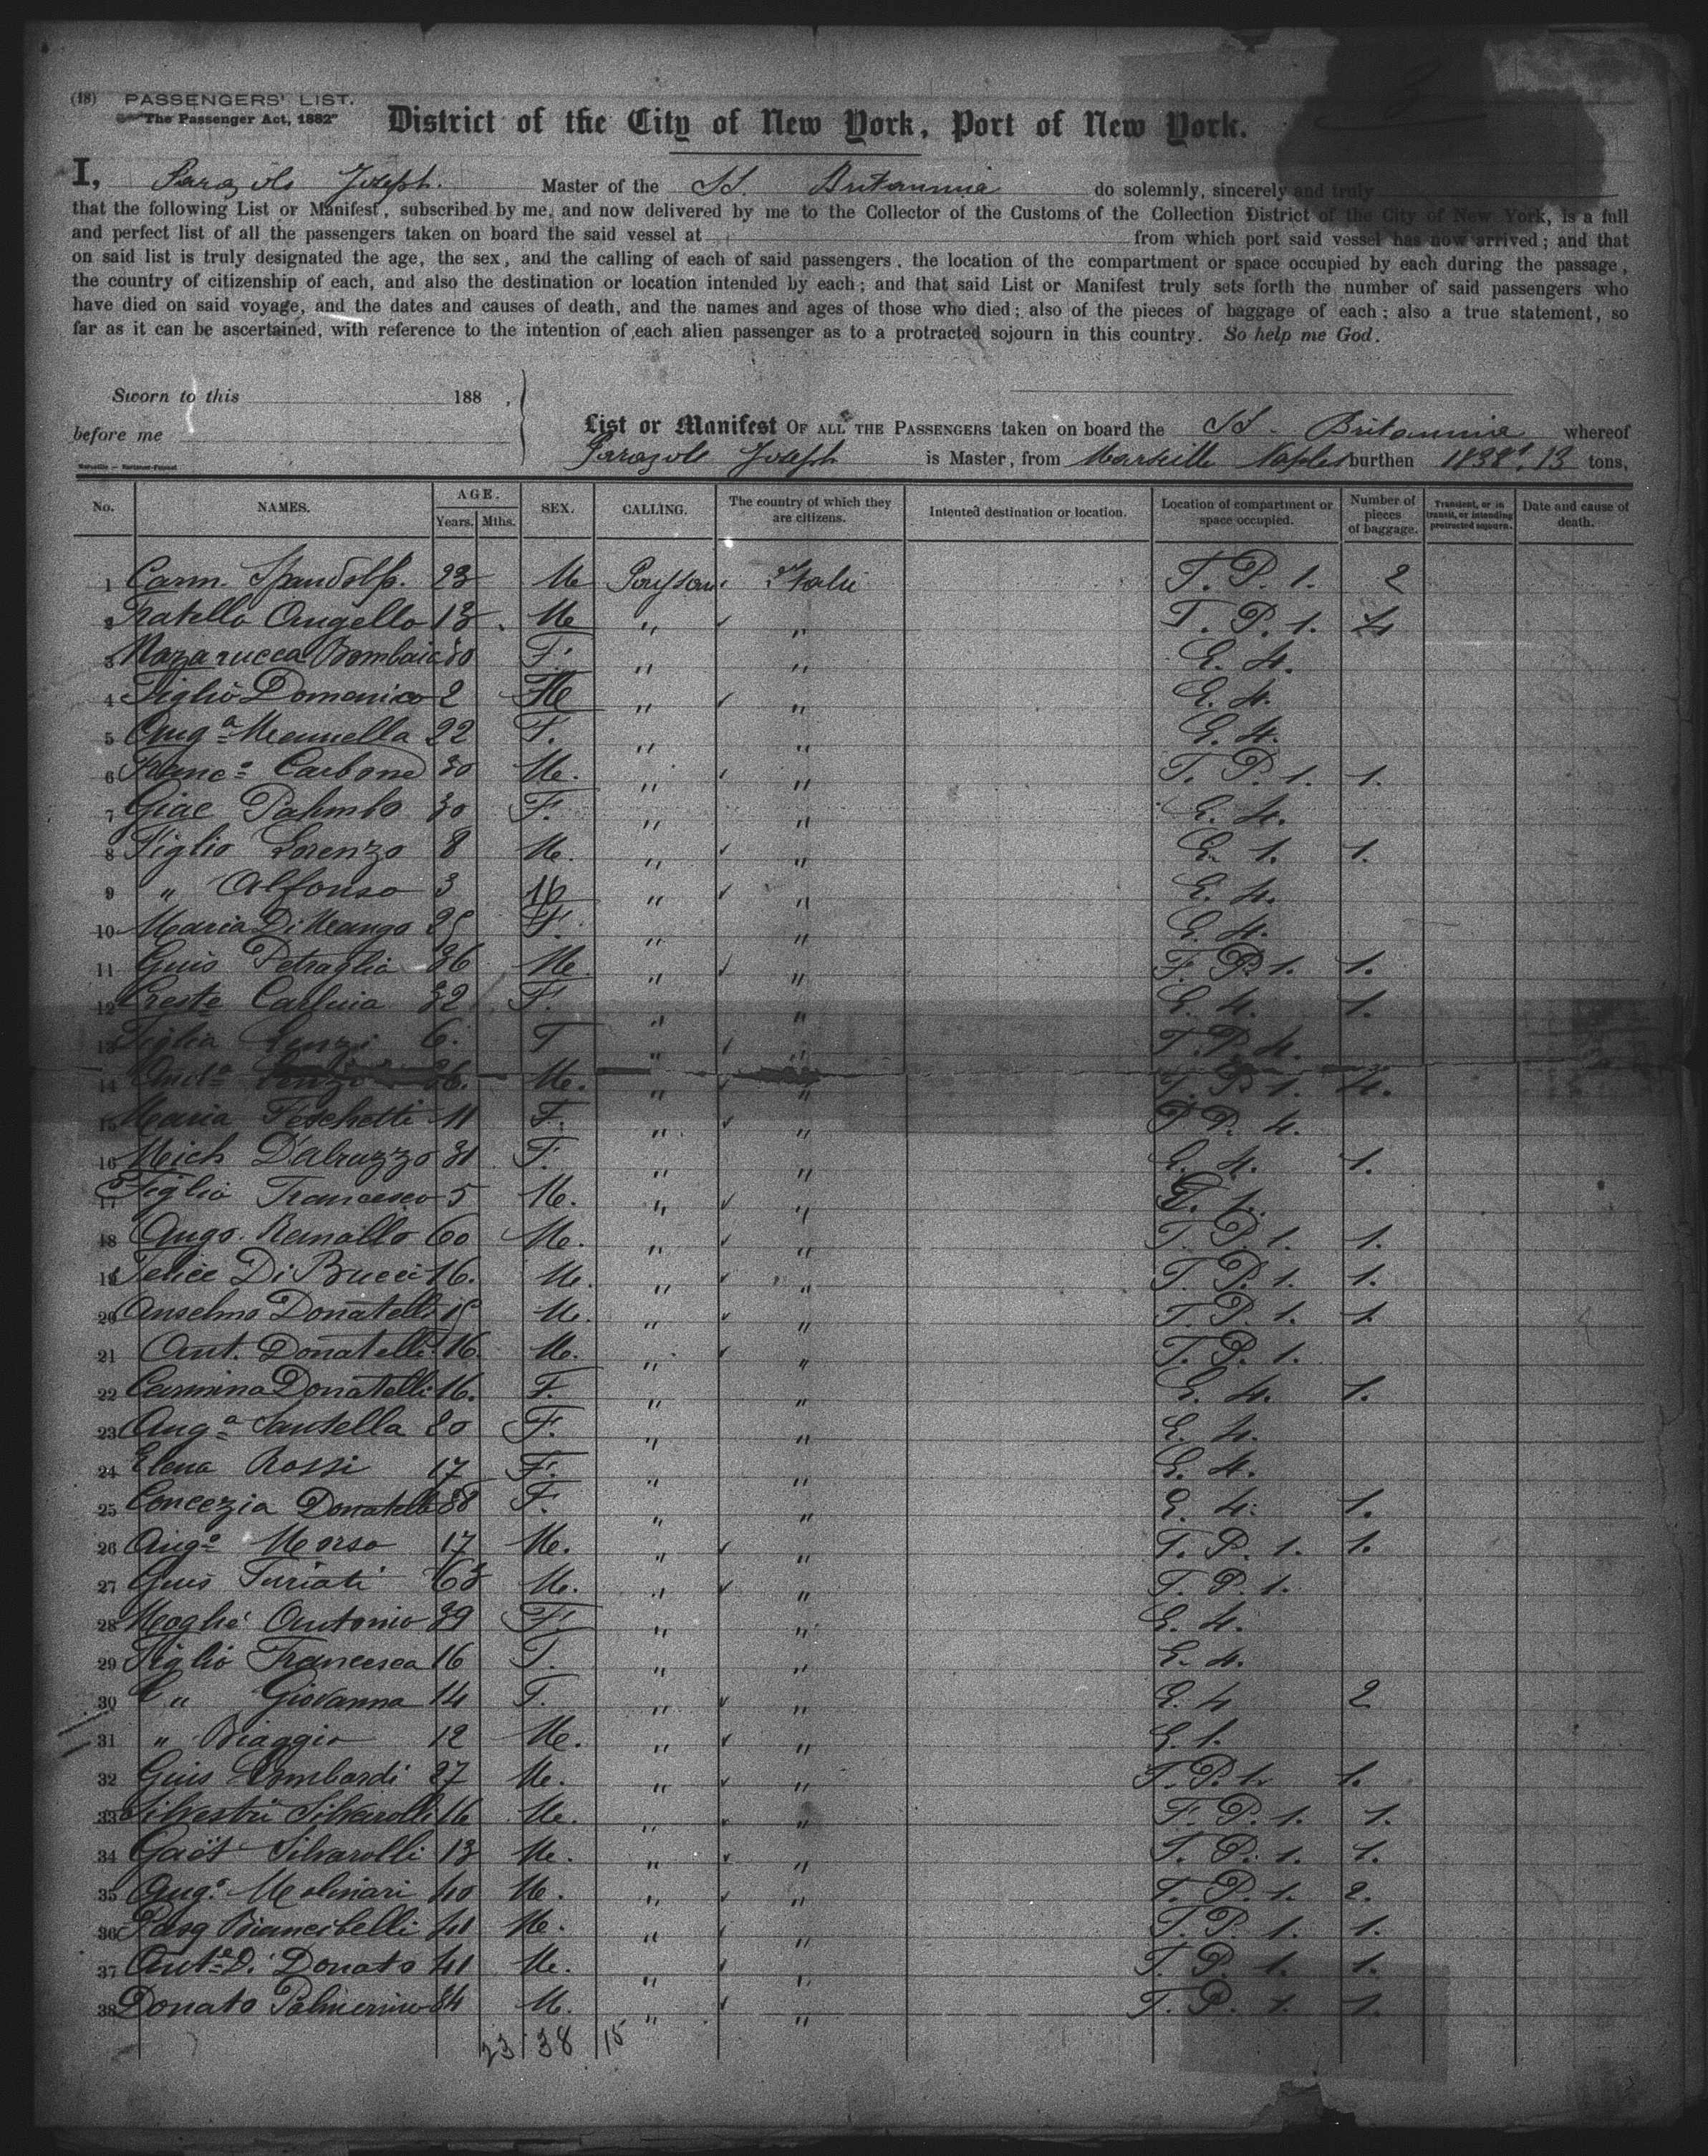 (18) PASSENGERS' LIST.
"The Passenger Act, 1882"
District of the City of New York, Port of New York.
I, Joseph. Master of the SS. Britannia do solemnly, sincerely and truly
that the following List or Manifest, subscribed by me, and now delivered by me to the Collector of the Customs of the Collection District of the City of New York, is a full
and perfect list of all the passengers taken on board the said vessel at from which port said vessel has now arrived; and that
on said list is truly designated the age, the sex, and the calling of each of said passengers, the location of the compartment or space occupied by each during the passage,
the country of citizenship of each, and also the destination or location intended by each; and that said List or Manifest truly sets forth the number of said passengers who
have died on said voyage, and the dates and causes of death, and the names and ages of those who died; also of the pieces of baggage of each; also a true statement, so
far as it can be ascertained, with reference to the intention of each alien passenger as to a protracted sojourn in this country. So help me God.
Sworn to this 188 ,
before me
List or Manifest OF ALL THE PASSENGERS taken on board the SS. Britannia whereof
Joseph is Master, from Marseille Naples burthen 1838 t. 13 tons,
No. NAMES. AGE. Years. Mths. SEX. CALLING. The country of which they are citizens. Intented destination or location. Location of compartment or space occupied. Number of pieces of baggage. Transient, or in transit, or intending protracted sojourn. Date and cause of death.
1 Carm. 23 M Italie T. P. 1. 2
2 Angello 13 M " " T. P. 1. 4
3 F. " " E. 4.
4 Figlio Domenico 2 M " " E. 4.
5 Ang.a 22 F. " " E. 4.
6 Franc.o Carbone 30 M. " " T. P. 1. 1.
7 Giac Palmbo 30 F. " " E. 4.
8 Figlio Lorenzo 8 M. " " E. 1. 1.
9 " Alfonso 3 M " " E. 4.
10 Maria Di F. " " E. 4.
11 Gius Petraglia 36 M. " " T. P. 1. 1.
12 32 F. " " E. 4. 1.
13 Figlia 6. F " " T. P. 4.
14 M. " " T. P. 1. 4.
15 Maria 11 F. " " T. P. 4.
16 Mich D'Abruzzo 31 F. " " E. 4. 1.
17 Figlio Francesco 5 M. " " E. 1.
18 Ango. 60 M. " " T. P. 1. 1.
19 Felice Di Bucci 16. M. " " T. P. 1. 1.
20 Anselmo Donatelli M. " " T. P. 1. 1
21 Ant. Donatelli 16. M. " " T. P. 1.
22 Carmina Donatelli 16. F. " " E. 4. 1.
23 Ang.a Santella 20 F. " " E. 4.
24 Elena Rossi 17 F. " " E. 4.
25 Concezia Donatelli 38 F. " " E. 4. 1.
26 Ang.o Morso 17 M. " " T. P. 1. 1.
27 Gius Furiati 63 M. " " T. P. 1.
28 Moglie Antonio 39 F. " " E. 4.
29 Figlio Francesca 16 F. " " E. 4.
30 " Giovanna 14 F. " " E. 4 2
31 " Biaggio 12 M. " " E. 1.
32 Gius Lombardi 27 M. " " T. P. 1. 1.
33 16 M. " " T. P. 1. 1.
34 Gaet 13 M. " " T. P. 1. 1.
35 Ang.o Molinari 40 M. " " T. P. 1. 2.
36 Pasq 41 M. " " T. P. 1. 1.
37 Ant.o D. Donato 41 M. " " T. P. 1. 1.
38 Donato Palmerino 34 M. " " T. P. 1. 1.
23 38 15